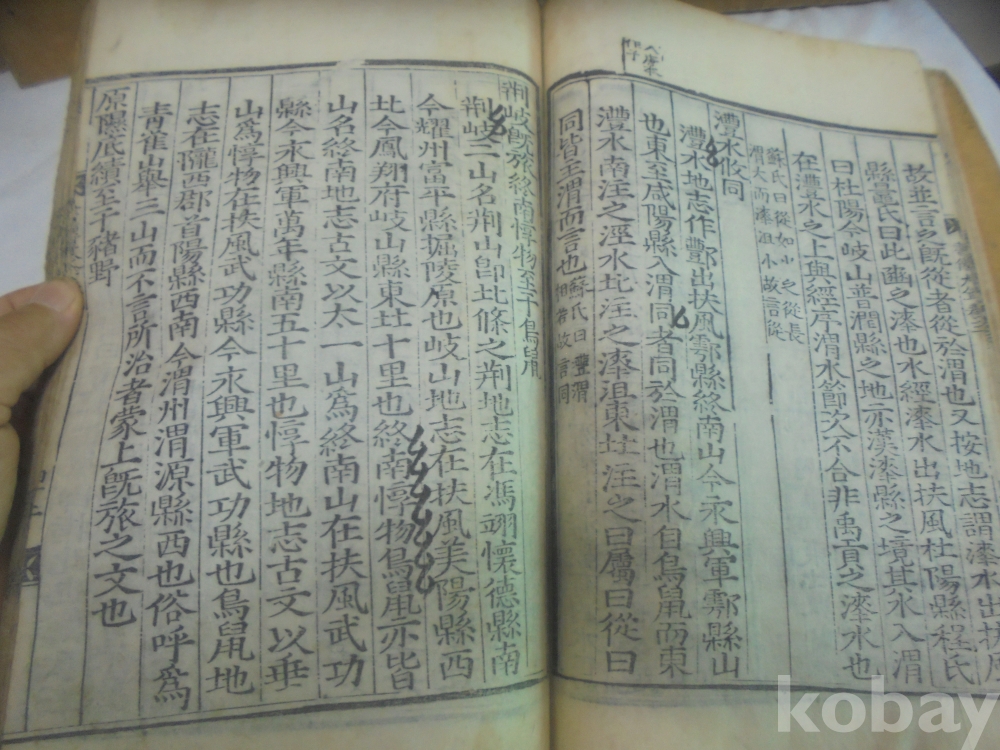 故並言之旣從者從於渭也又按地志謂漆水出扶風
縣鼂氏曰此豳之漆也水經漆水出扶風杜陽縣程氏
曰杜陽今岐山普潤縣之地亦漢漆縣之境其水入渭
在灃水之上與經序渭水節次不合非禹貢之漆水也
蘇氏曰從如少之從長
渭大而漆沮小故言從
灃水攸同
灃水地志作酆出扶風鄠縣終南山今永興軍鄠縣山
也東至咸陽縣入渭同者同於渭也渭水自鳥鼠而東
灃水南注之涇水北注之漆沮東北注之曰屬曰從曰
同皆主渭而言也
蘇氏曰灃渭
相若故言同
荆岐旣旅終南惇物至于鳥鼠
荆岐二山名荆山卽北條之荆地志在馮翊懷德縣南
今耀州富平縣掘陵原也岐山地志在扶風美陽縣西
北今鳳翔府岐山縣東北十里也終南惇物鳥鼠亦皆
山名終南地志古文以太一山爲終南山在扶風武功
縣今永興軍萬年縣南五十里也惇物地志古文以垂
山爲惇物在扶風武功縣今永興軍武功縣也鳥鼠地
志在隴西郡首陽縣西南今渭州渭源縣西也俗呼爲
青雀山舉三山而不言所治者蒙上旣旅之文也
原隰底績至于豬野
kobay